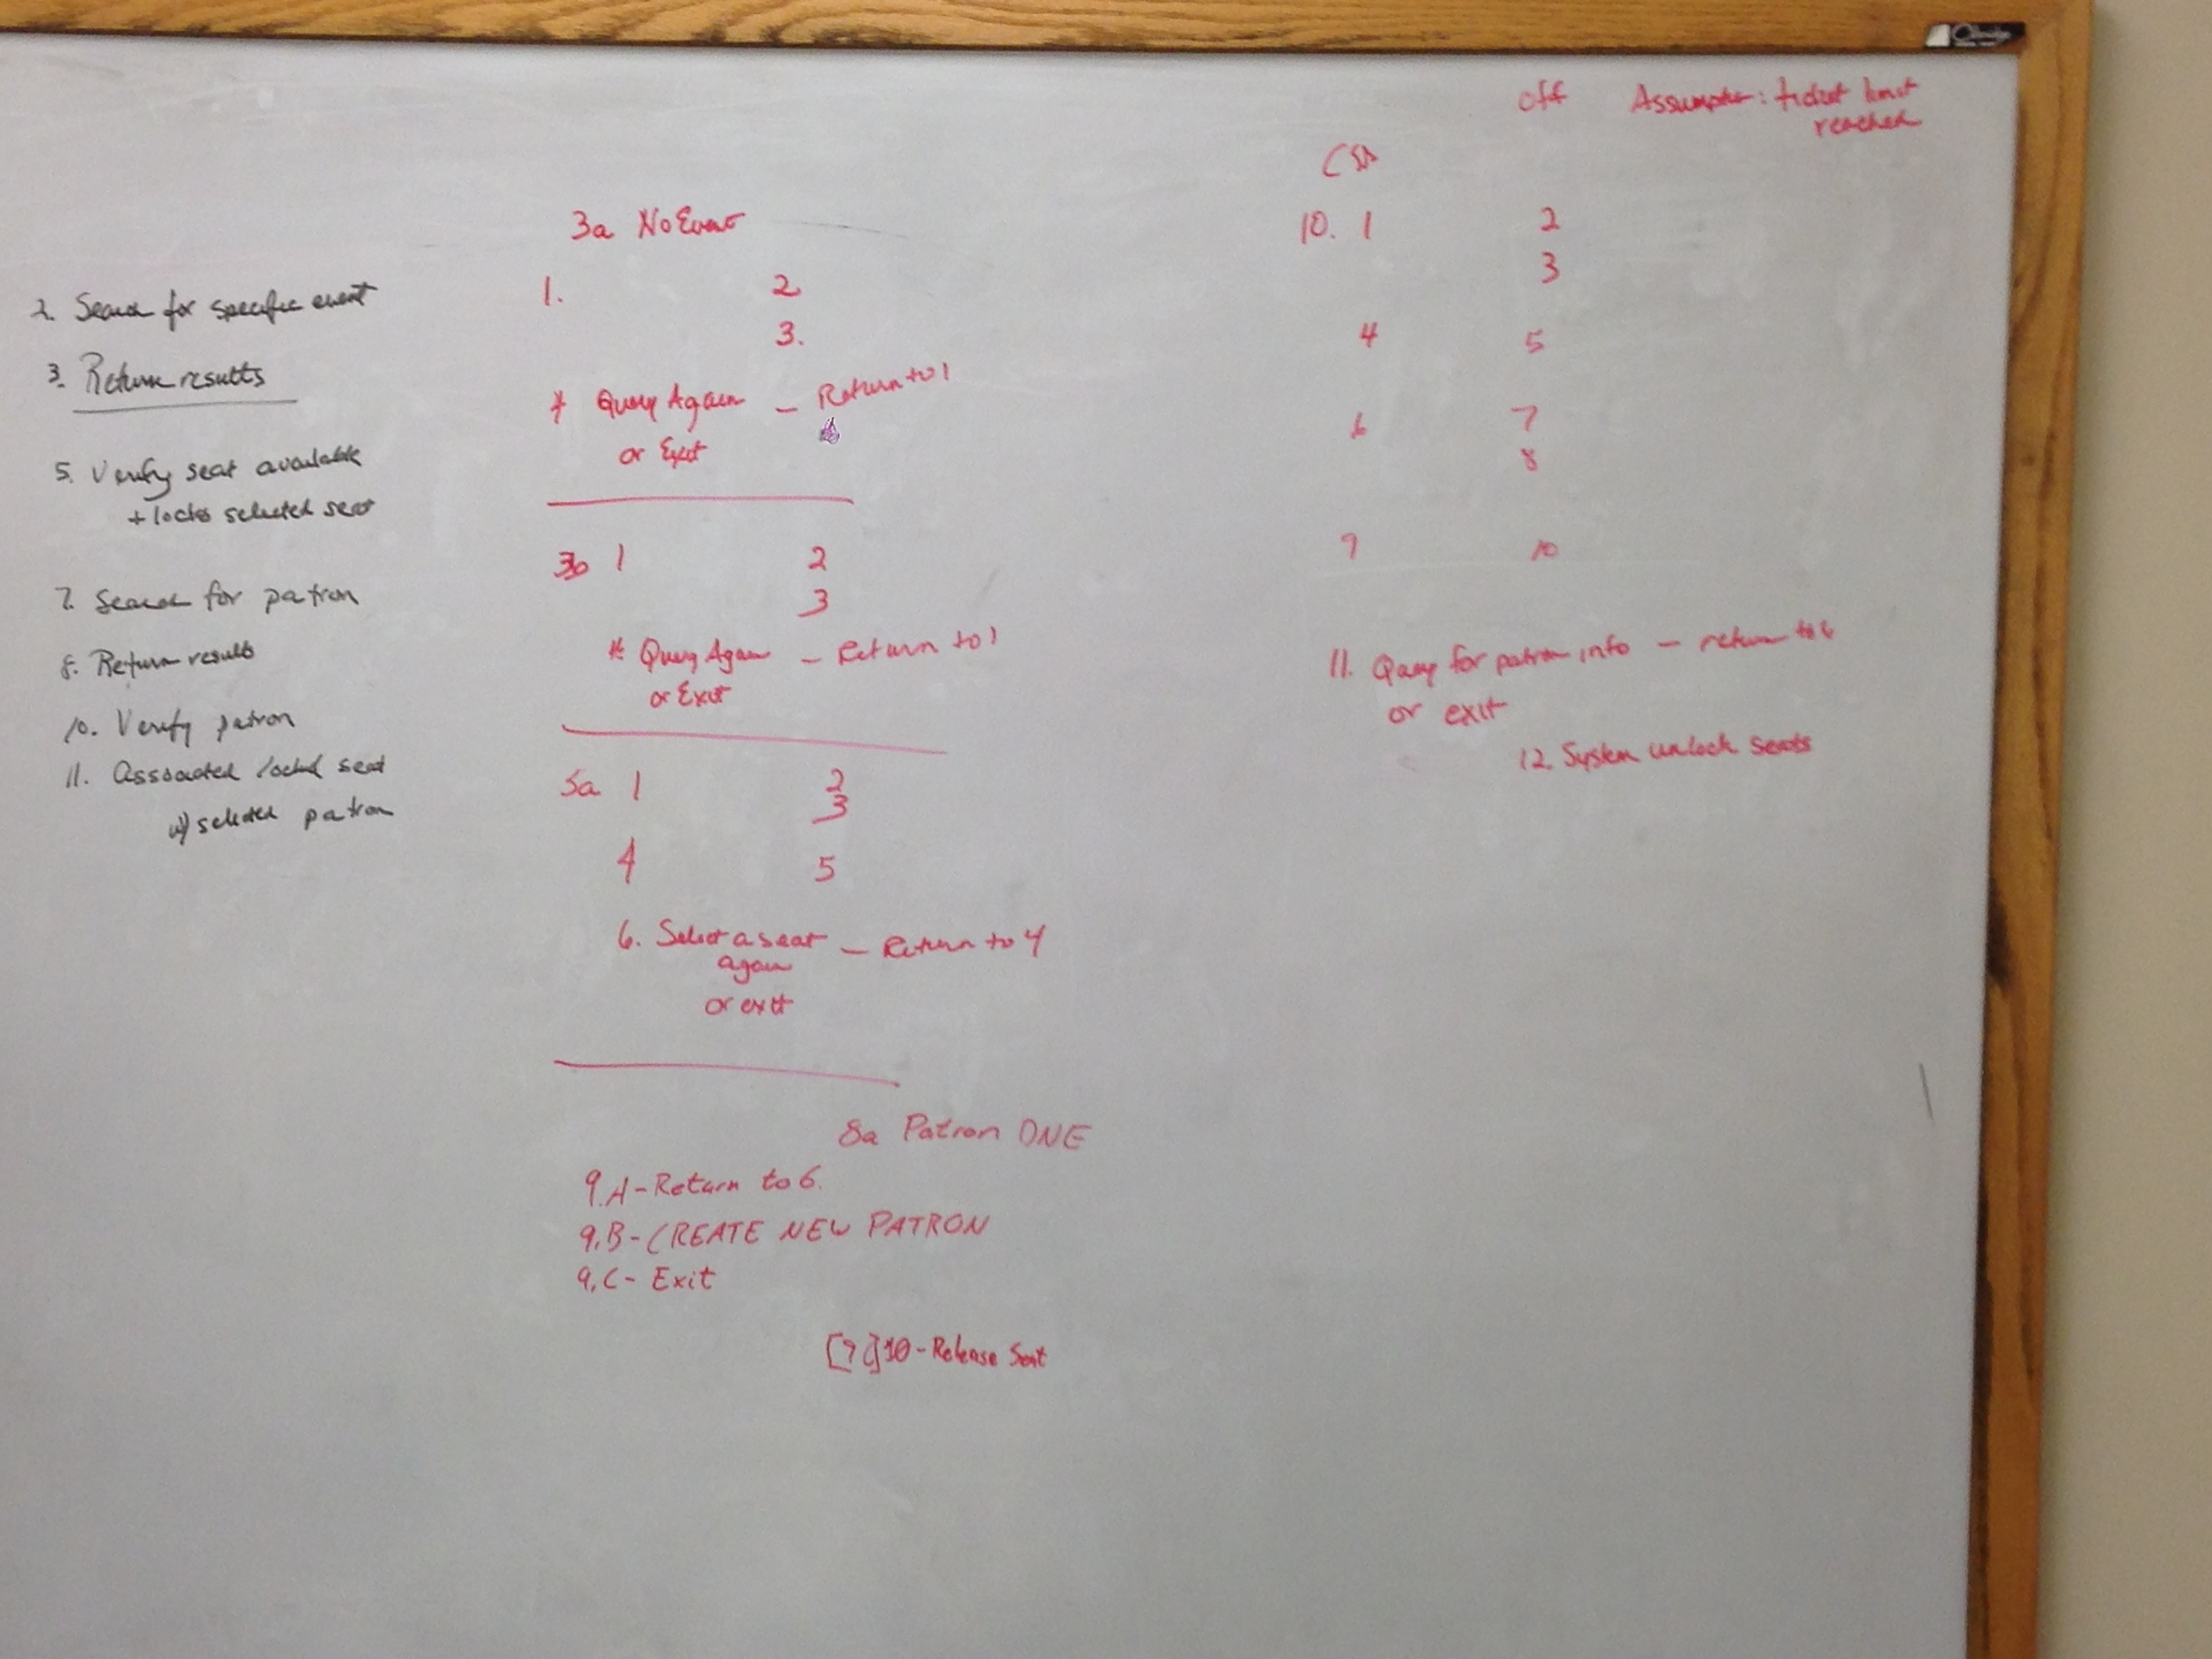 2. Search for specific event
3. Return results
5. Verify seat available
+ locks selected seat
7. Search for patron
8. Return results
10. Verify patron
11. Associated locked seat
w/ selected patron
3a No Event
1. 2
3.
* Query Again – Return to 1
or Exit
3b 1 2
3
* Query Again – Return to 1
or Exit
5a 1 2
3
4 5
6. Select a seat – Return to 4
again
or exit
8a Patron DNE
9.A - Return to 6.
9.B - CREATE NEW PATRON
9.C - Exit
10 - Release Seat
off Assumption: ticket limit
reached
10. 1 2
3
4 5
6 7
8
9 10
11. Query for patron info – return to 6
or exit
12. System unlock seats